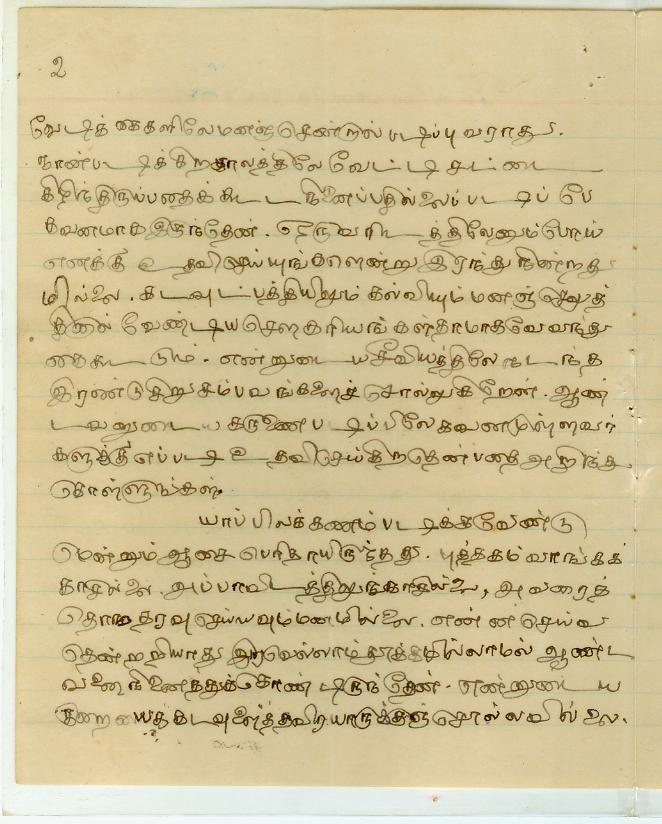 2
வேடிக்கைகளிலே மனஞ் சென்றால் படிப்பு வராது.
நான் படிக்கிற காலத்திலே வேட்டி சட்டை
கிழிந்திருப்பதைக்கூட நினைப்பதில்லை. படிப்பே
கவனமாக இருந்தேன். ஒருவரிடத்திலேனும் போய்
எனக்கு உதவி செய்யுங்களென்று இரந்து நின்றது
மில்லை. கடவுட் பக்தியிலும் கல்வியும் மனஞ் செலுத்
தினால் வேண்டிய சௌகரியங்கள் தாமாகவே வந்து
கைகூடும். என்னுடைய சீவியத்திலே நடந்த
இரண்டு சிறு சம்பவங்களைச் சொல்லுகிறேன். ஆண்
டவனுடைய கருணை படிப்பிலே கவனமுள்ளவர்
களுக்கு எப்படி உதவி செய்கிறதென்பதை அறிந்து
கொள்ளுங்கள்.
யாப்பிலக்கணம் படிக்கவேண்டு
மென்னும் ஆசை பெரிதாயிருந்தது. புத்தகம் வாங்கக்
காசில்லை. அப்பாவிடத்திலுங் காசில்லை, அவரைத்
தொந்தரவு செய்யவும் மனமில்லை. என்ன செய்வ
தென்றறியாது இரவெல்லாம் தூக்கமில்லாமல் ஆண்ட
வனை நினைத்துக்கொண்டிருந்தேன். என்னுடைய
குறையைக் கடவுளைத்தவிர யாருக்குஞ் சொல்லவில்லை.